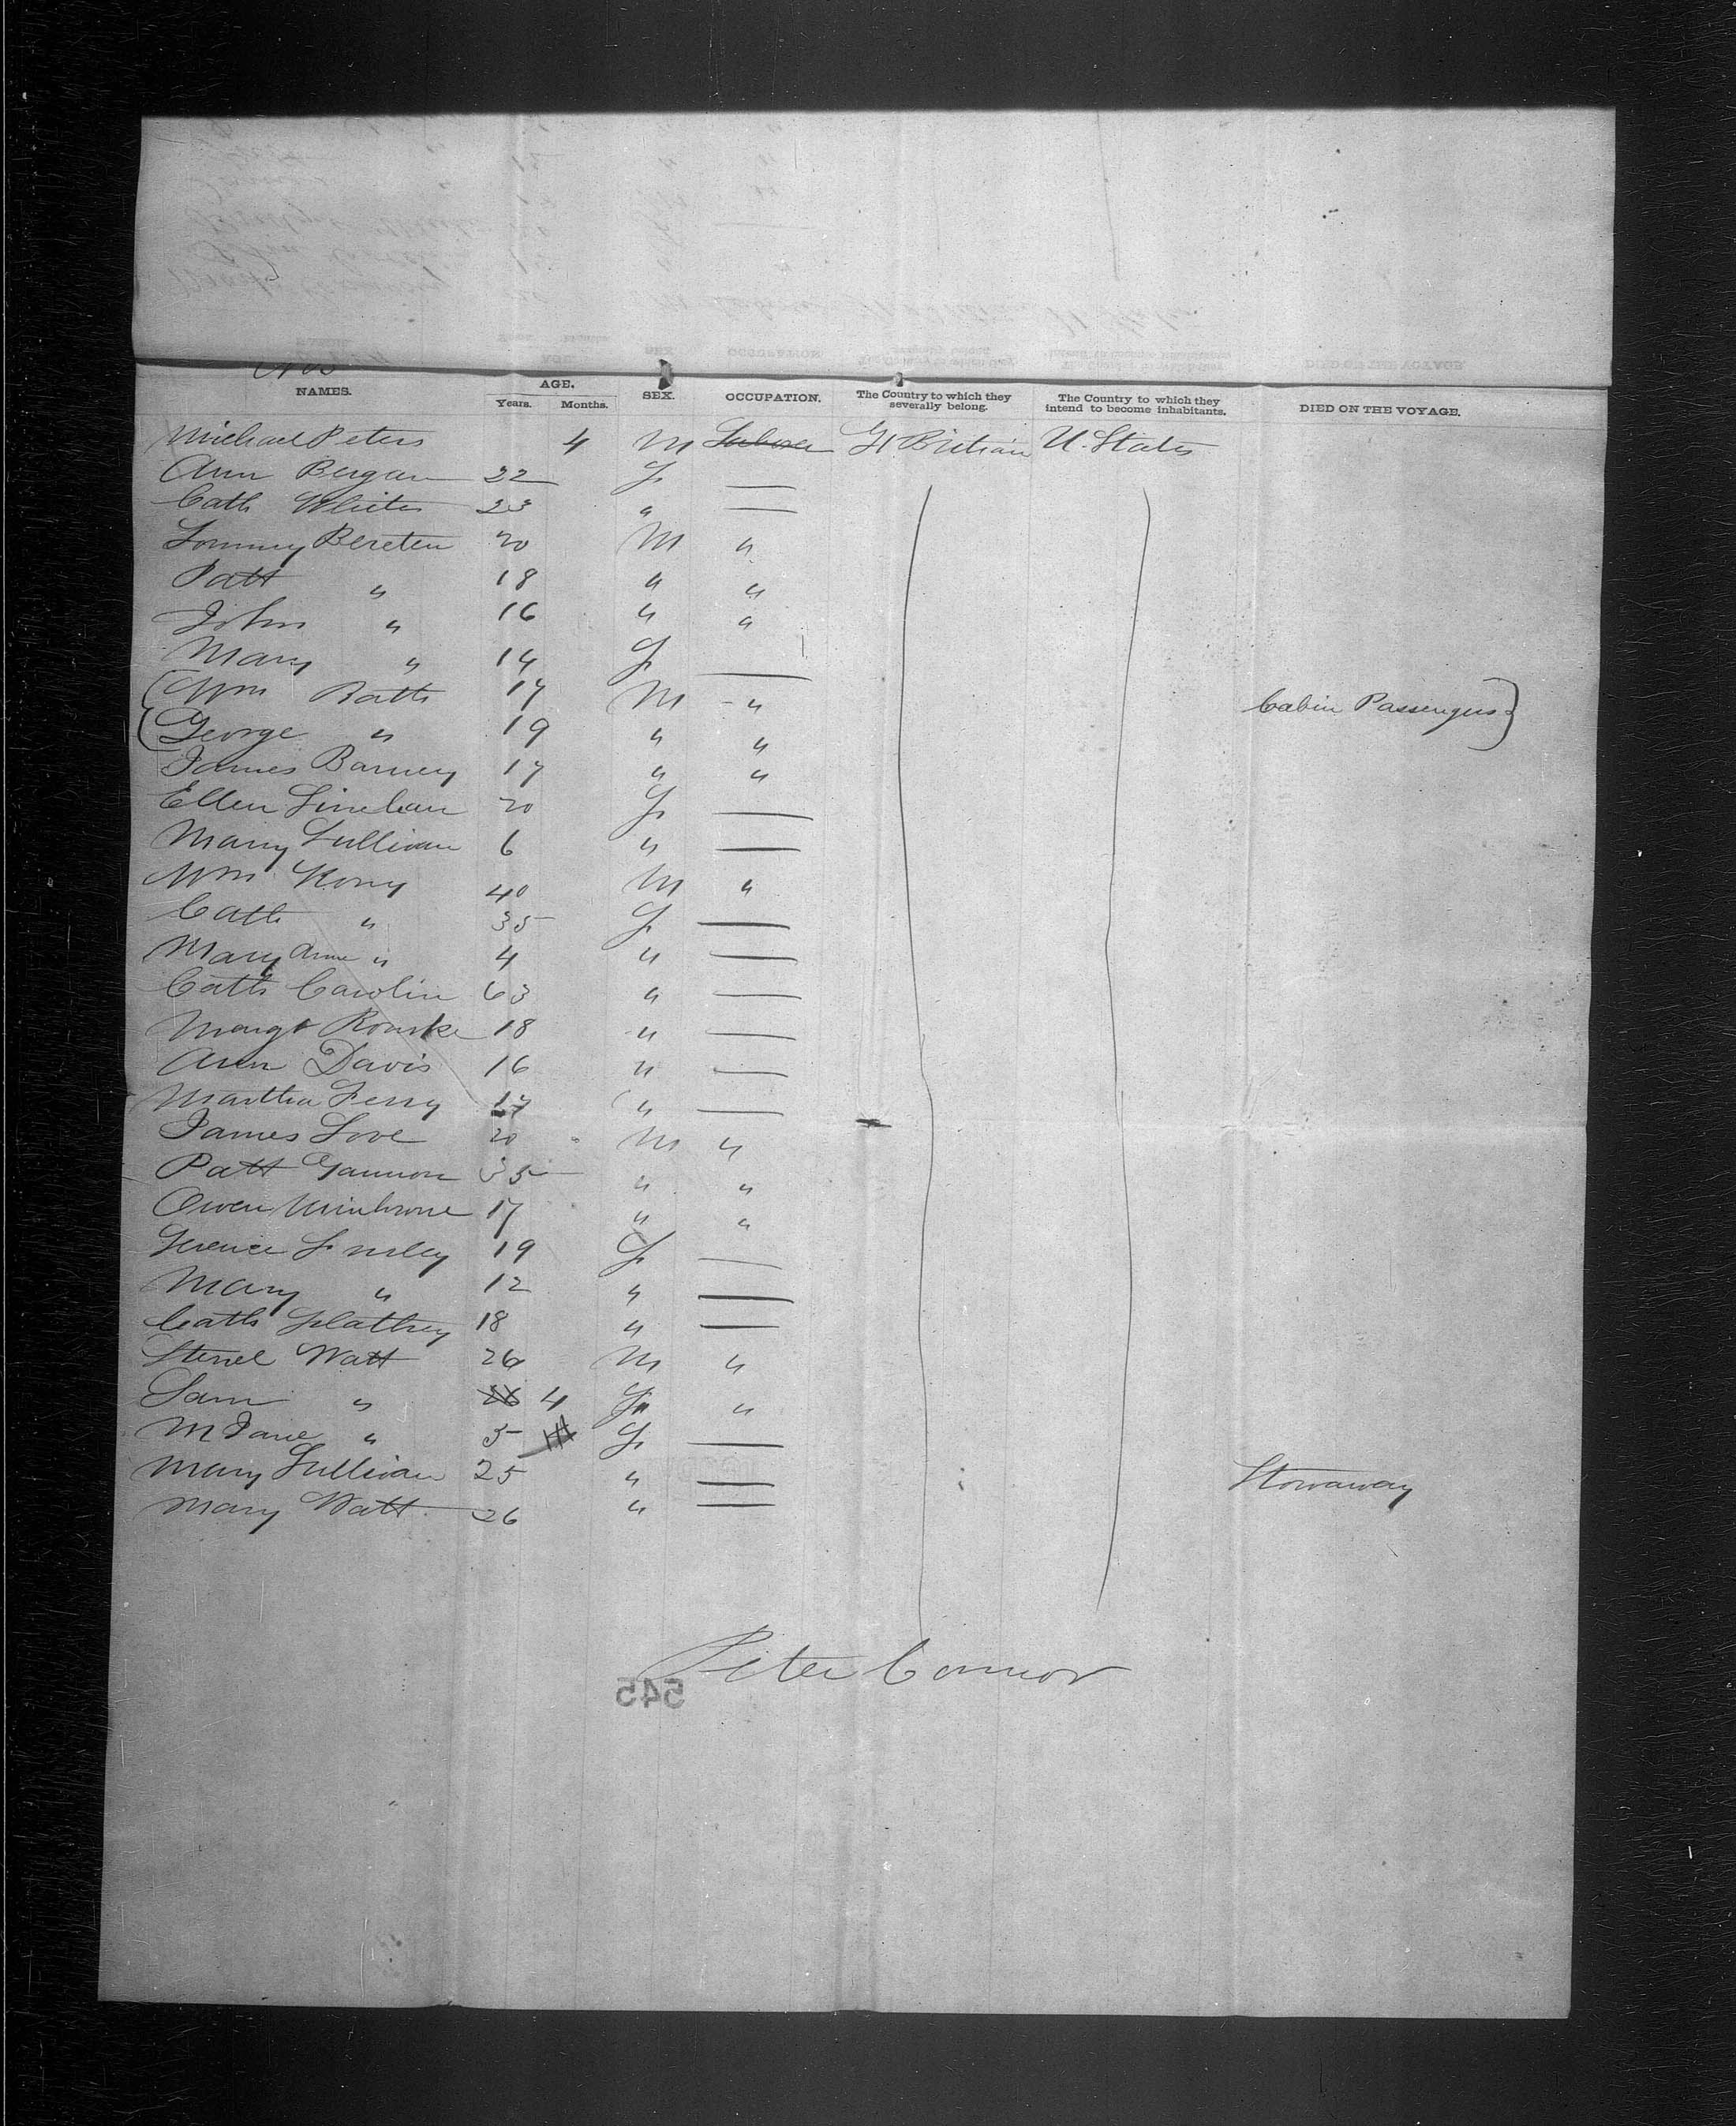 NAMES. AGE. Years. Months. SEX. OCCUPATION. The Country to which they severally belong. The Country to which they intend to become inhabitants. DIED ON THE VOYAGE.
Michael Peters 4 M Laborer Gt Britian U. States
Ann Bergan 22 F —
Cath White 23 " —
Tommy Bereten 20 M "
Patt " 18 " "
John " 16 " "
Mary " 14 F —
Wm Batts 17 M " Cabin Passengers
George " 19 " "
James Barney 17 " "
Ellen Linehan 20 F —
Mary Sullivan 6 " —
Wm 40 M "
Cath " 35 F —
Mary Anne " 4 " —
Cath Carolin 63 " —
Margt Rourke 18 " —
Ann Davis 16 " —
Martha Ferry 17 " —
James Love 20 M "
Patt Gannon 35 " "
Owen 17 " "
19 F —
Mary " 12 " —
Cath 18 " —
Watt 26 M "
Sam " 4 "
M Jane " 5 F —
Mary Sullivan 25 " — Stowaway
Mary Watt 26 " —
Peter Connor
545